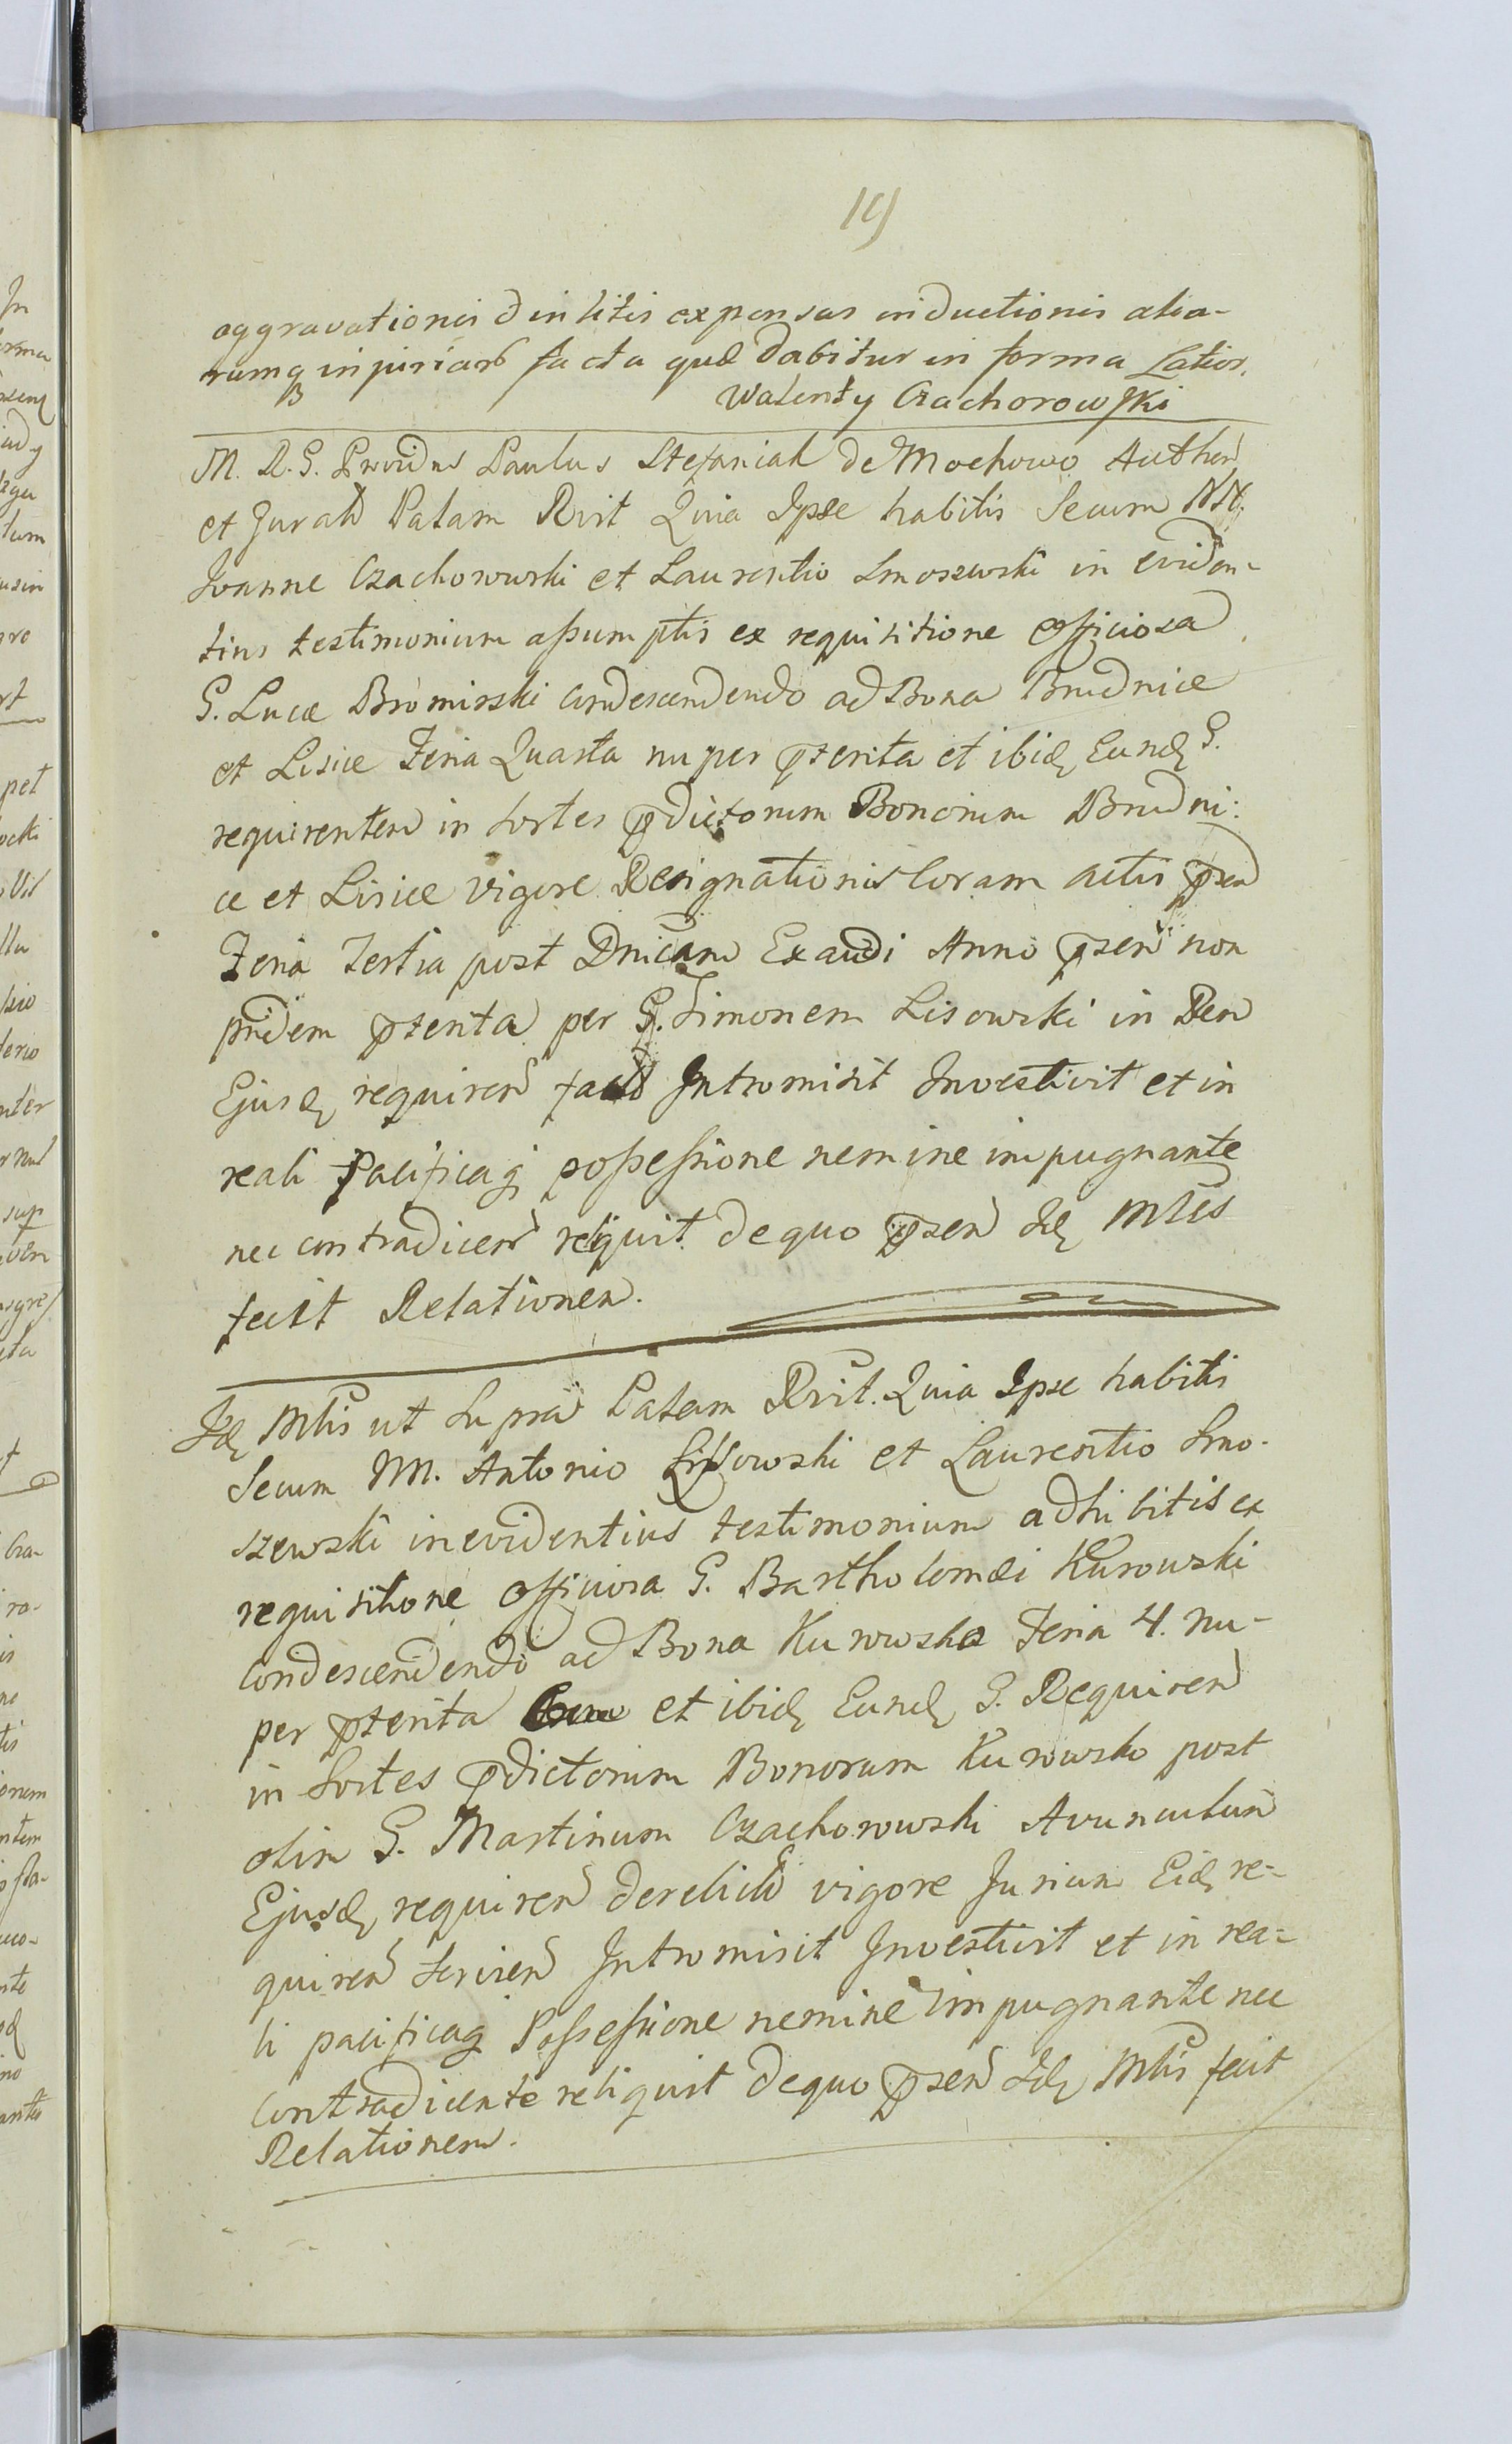 19
aggravationis d in litis expensas inductionis alia-
rumq injuriar facta quæ dabitur in forma Latior.
Walenty Czachorowski
M. R. G. Providus Paulus Stefaniak de Mochowo Authen
et Jurat Palam Rvit Quia Ipse habitis Secum NN.
Joanne Czachorowski et Laurentio Smoszewski in eviden-
tius testimonium assumptis ex requisitione officiosa
G. Lucæ Bromirski Condescendendo ad Bona Brudnice
et Lisice Feria Quarta nuper pterita et ibid Eund G.
requirentem in Sortes pdictorum Bonorum Brudni:
ce et Lisice vigore Resignationis Coram actis psen
Feria Tertia post Dnicam Exaudi Anno psen non
pridem pterita per G. Simonem Lisowski in Rem
Ejusd requiren fact Intromisit Investivit et in
reali Pacificaq possessione nemine impugnante
nec contradicen reliquit de quo psen Id Mlis
fecit Relationem.
Id Mlis ut Supra Palam Rvit. Quia Ipse habitis
Secum NN. Antonio Lissowski et Laurentio Smo-
szewski in evidentius testimonium adhibitis ex
requisitione Officiosa G. Bartholomæi Kurowski
Condescendendo ad Bona Kurowsko Feria 4. nu-
per pterita et ibid Eund G. Requiren
in Sortes pdictorum Bonorum Kurowsko post
olim G. Martinum Czachorowski Avunculum
Ejusd requiren derelict vigore Jurium Eid re-
quiren servien Intromisit Investivit et in rea-
li pacificaq Possessione nemine impugnante nec
Contradicente reliquit de quo psen Id Mlis fecit
Relationem.